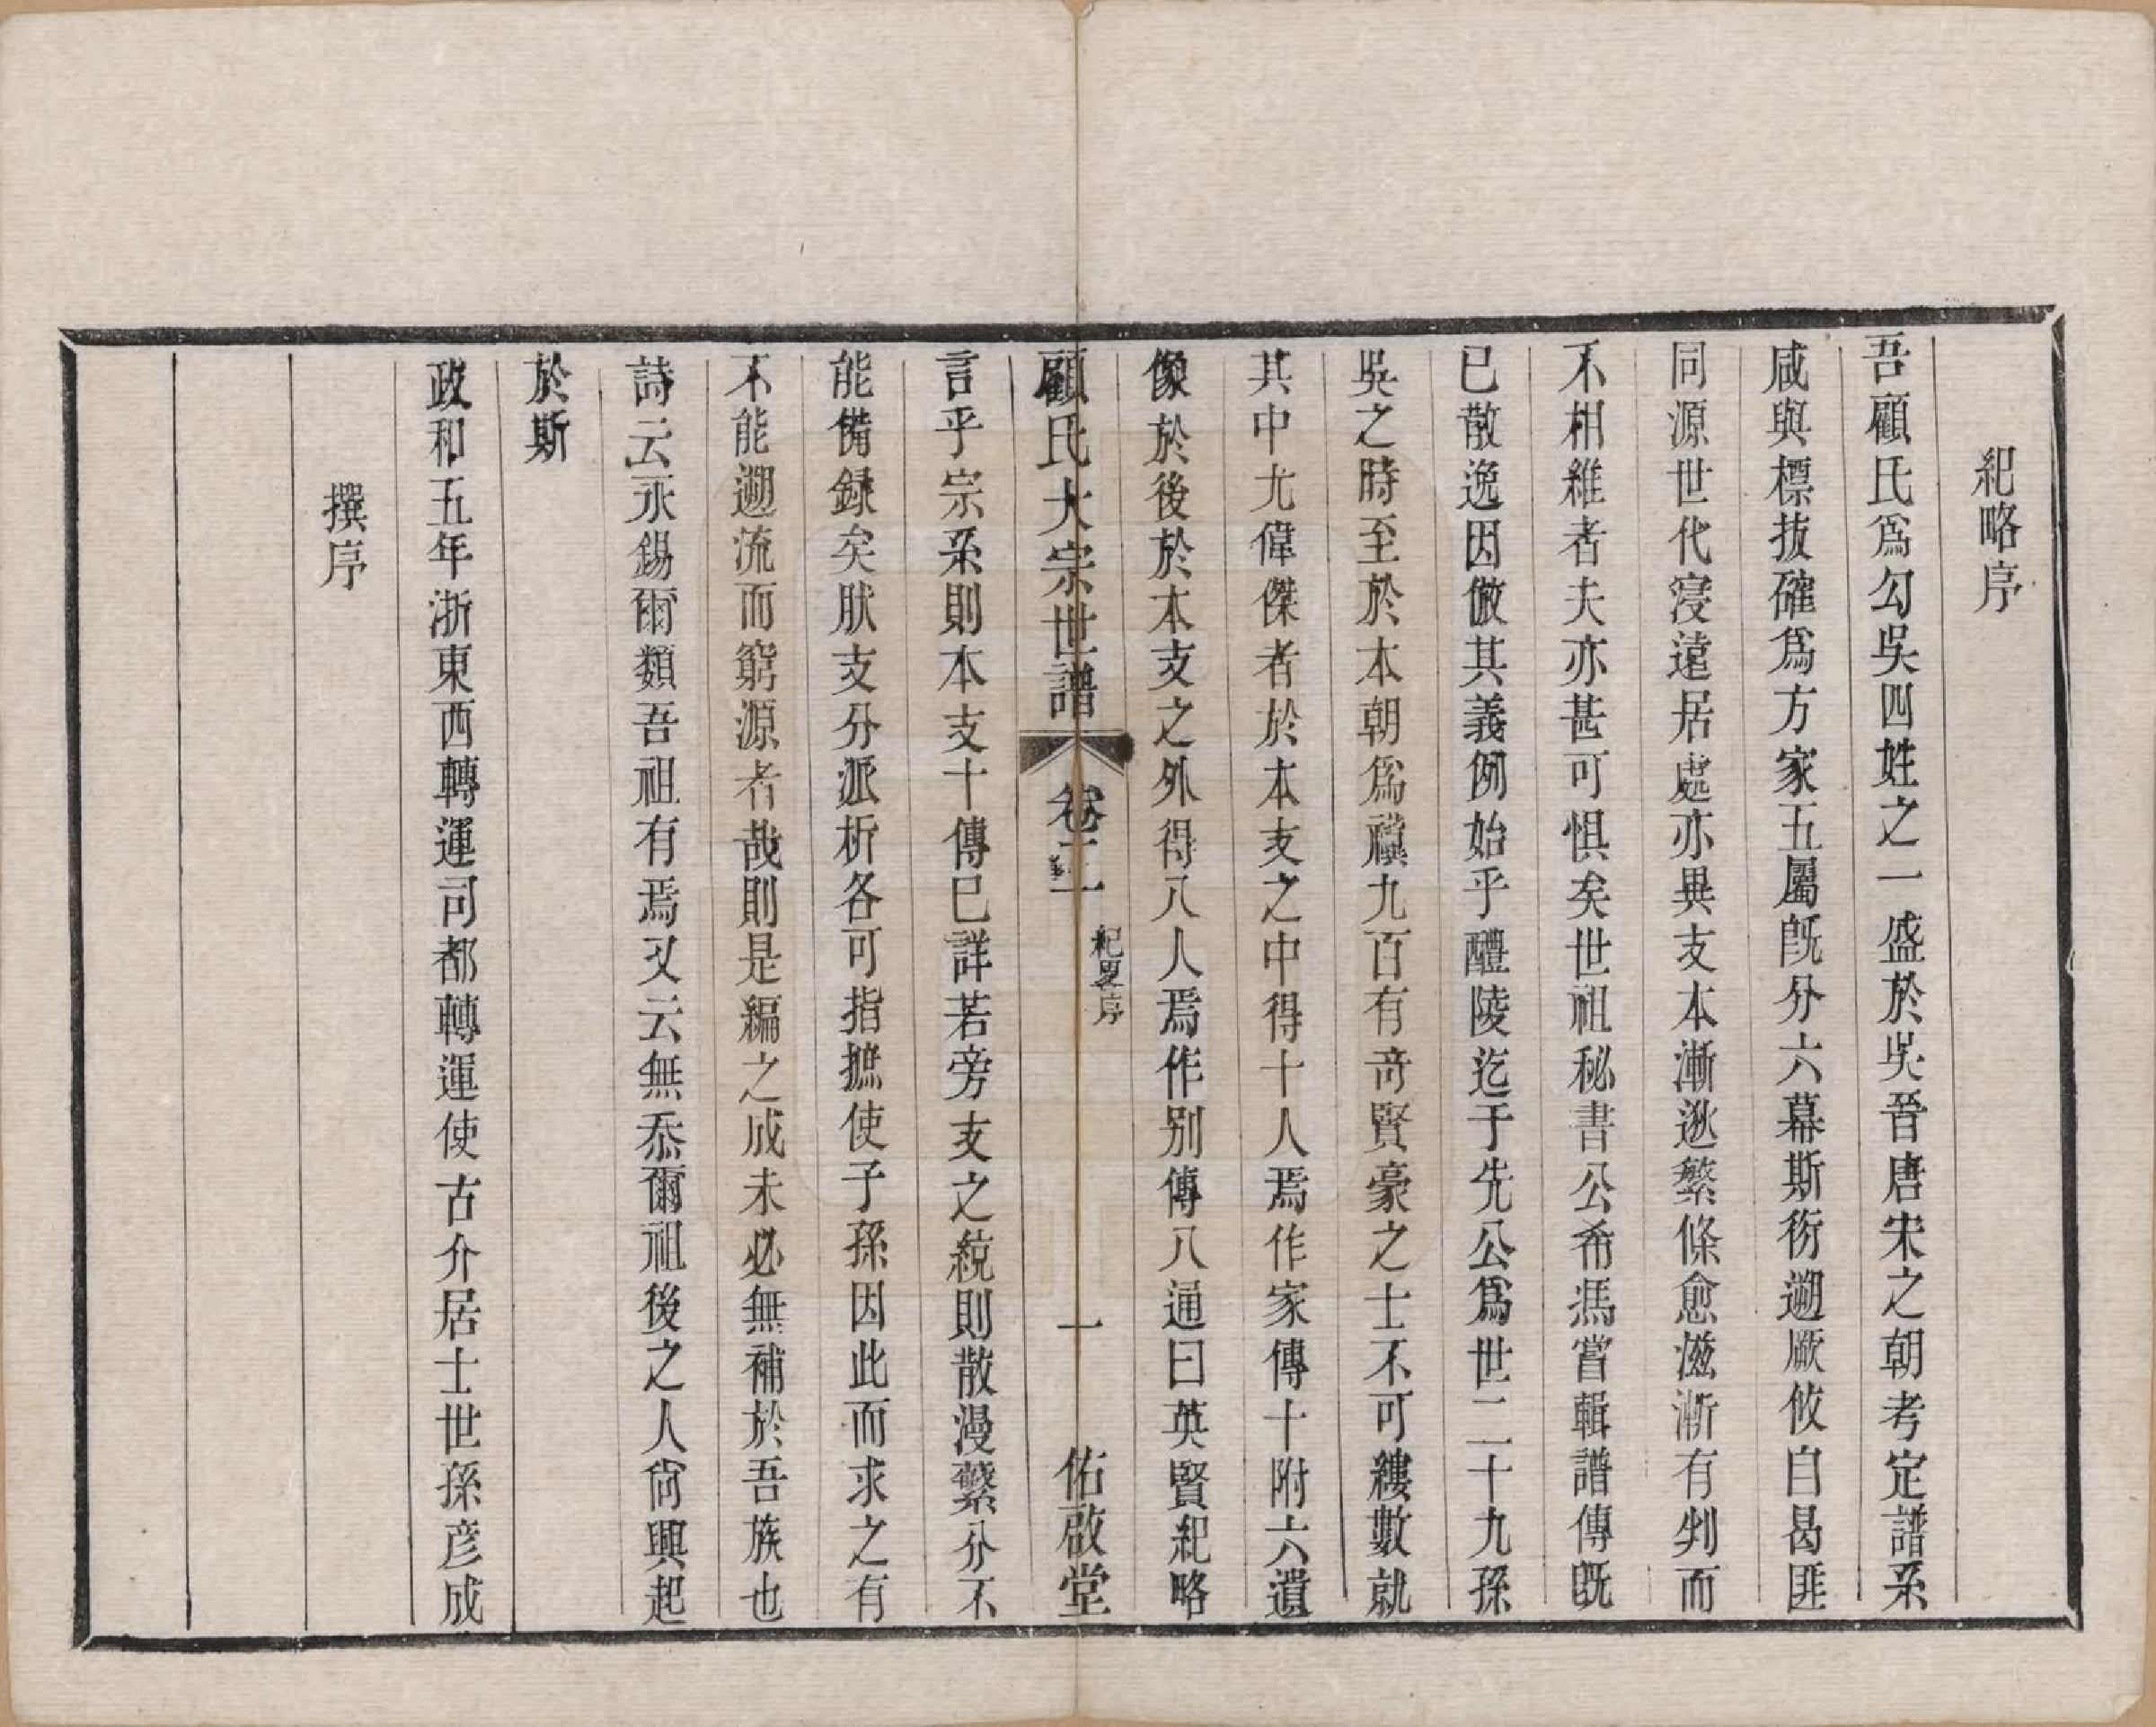 紀略序
吾顧氏爲勾吳四姓之一盛於吳晉唐宋之朝考定譜系
咸與標拔確爲方家五屬旣分六幕斯衍遡厥攸自曷匪
同源世代寖遠居處亦異支本漸逖繁條愈滋漸有判而
不相維者夫亦甚可惧矣世祖秘書公希馮嘗輯譜傳旣
已散逸因倣其義例始乎醴陵迄于先公爲世二十九孫
吳之時至於本朝爲禩九百有奇賢豪之士不可縷數就
其中尤偉傑者於本支之中得十人焉作家傳十附六遺
像於後於本支之外得八人焉作別傳八通曰英賢紀略
顧氏大宗世譜 卷二 紀畧序 一 佑啟堂
言乎宗系則本支十傳已詳若旁支之統則散漫繁分不
能備録矣肰支分派析各可指摭使子孫因此而求之有
不能遡流而窮源者哉則是編之成未必無補於吾族也
詩云永錫爾類吾祖有焉又云無忝爾祖後之人尙興起
於斯
政和五年浙東西轉運司都轉運使古介居士世孫彦成
撰序